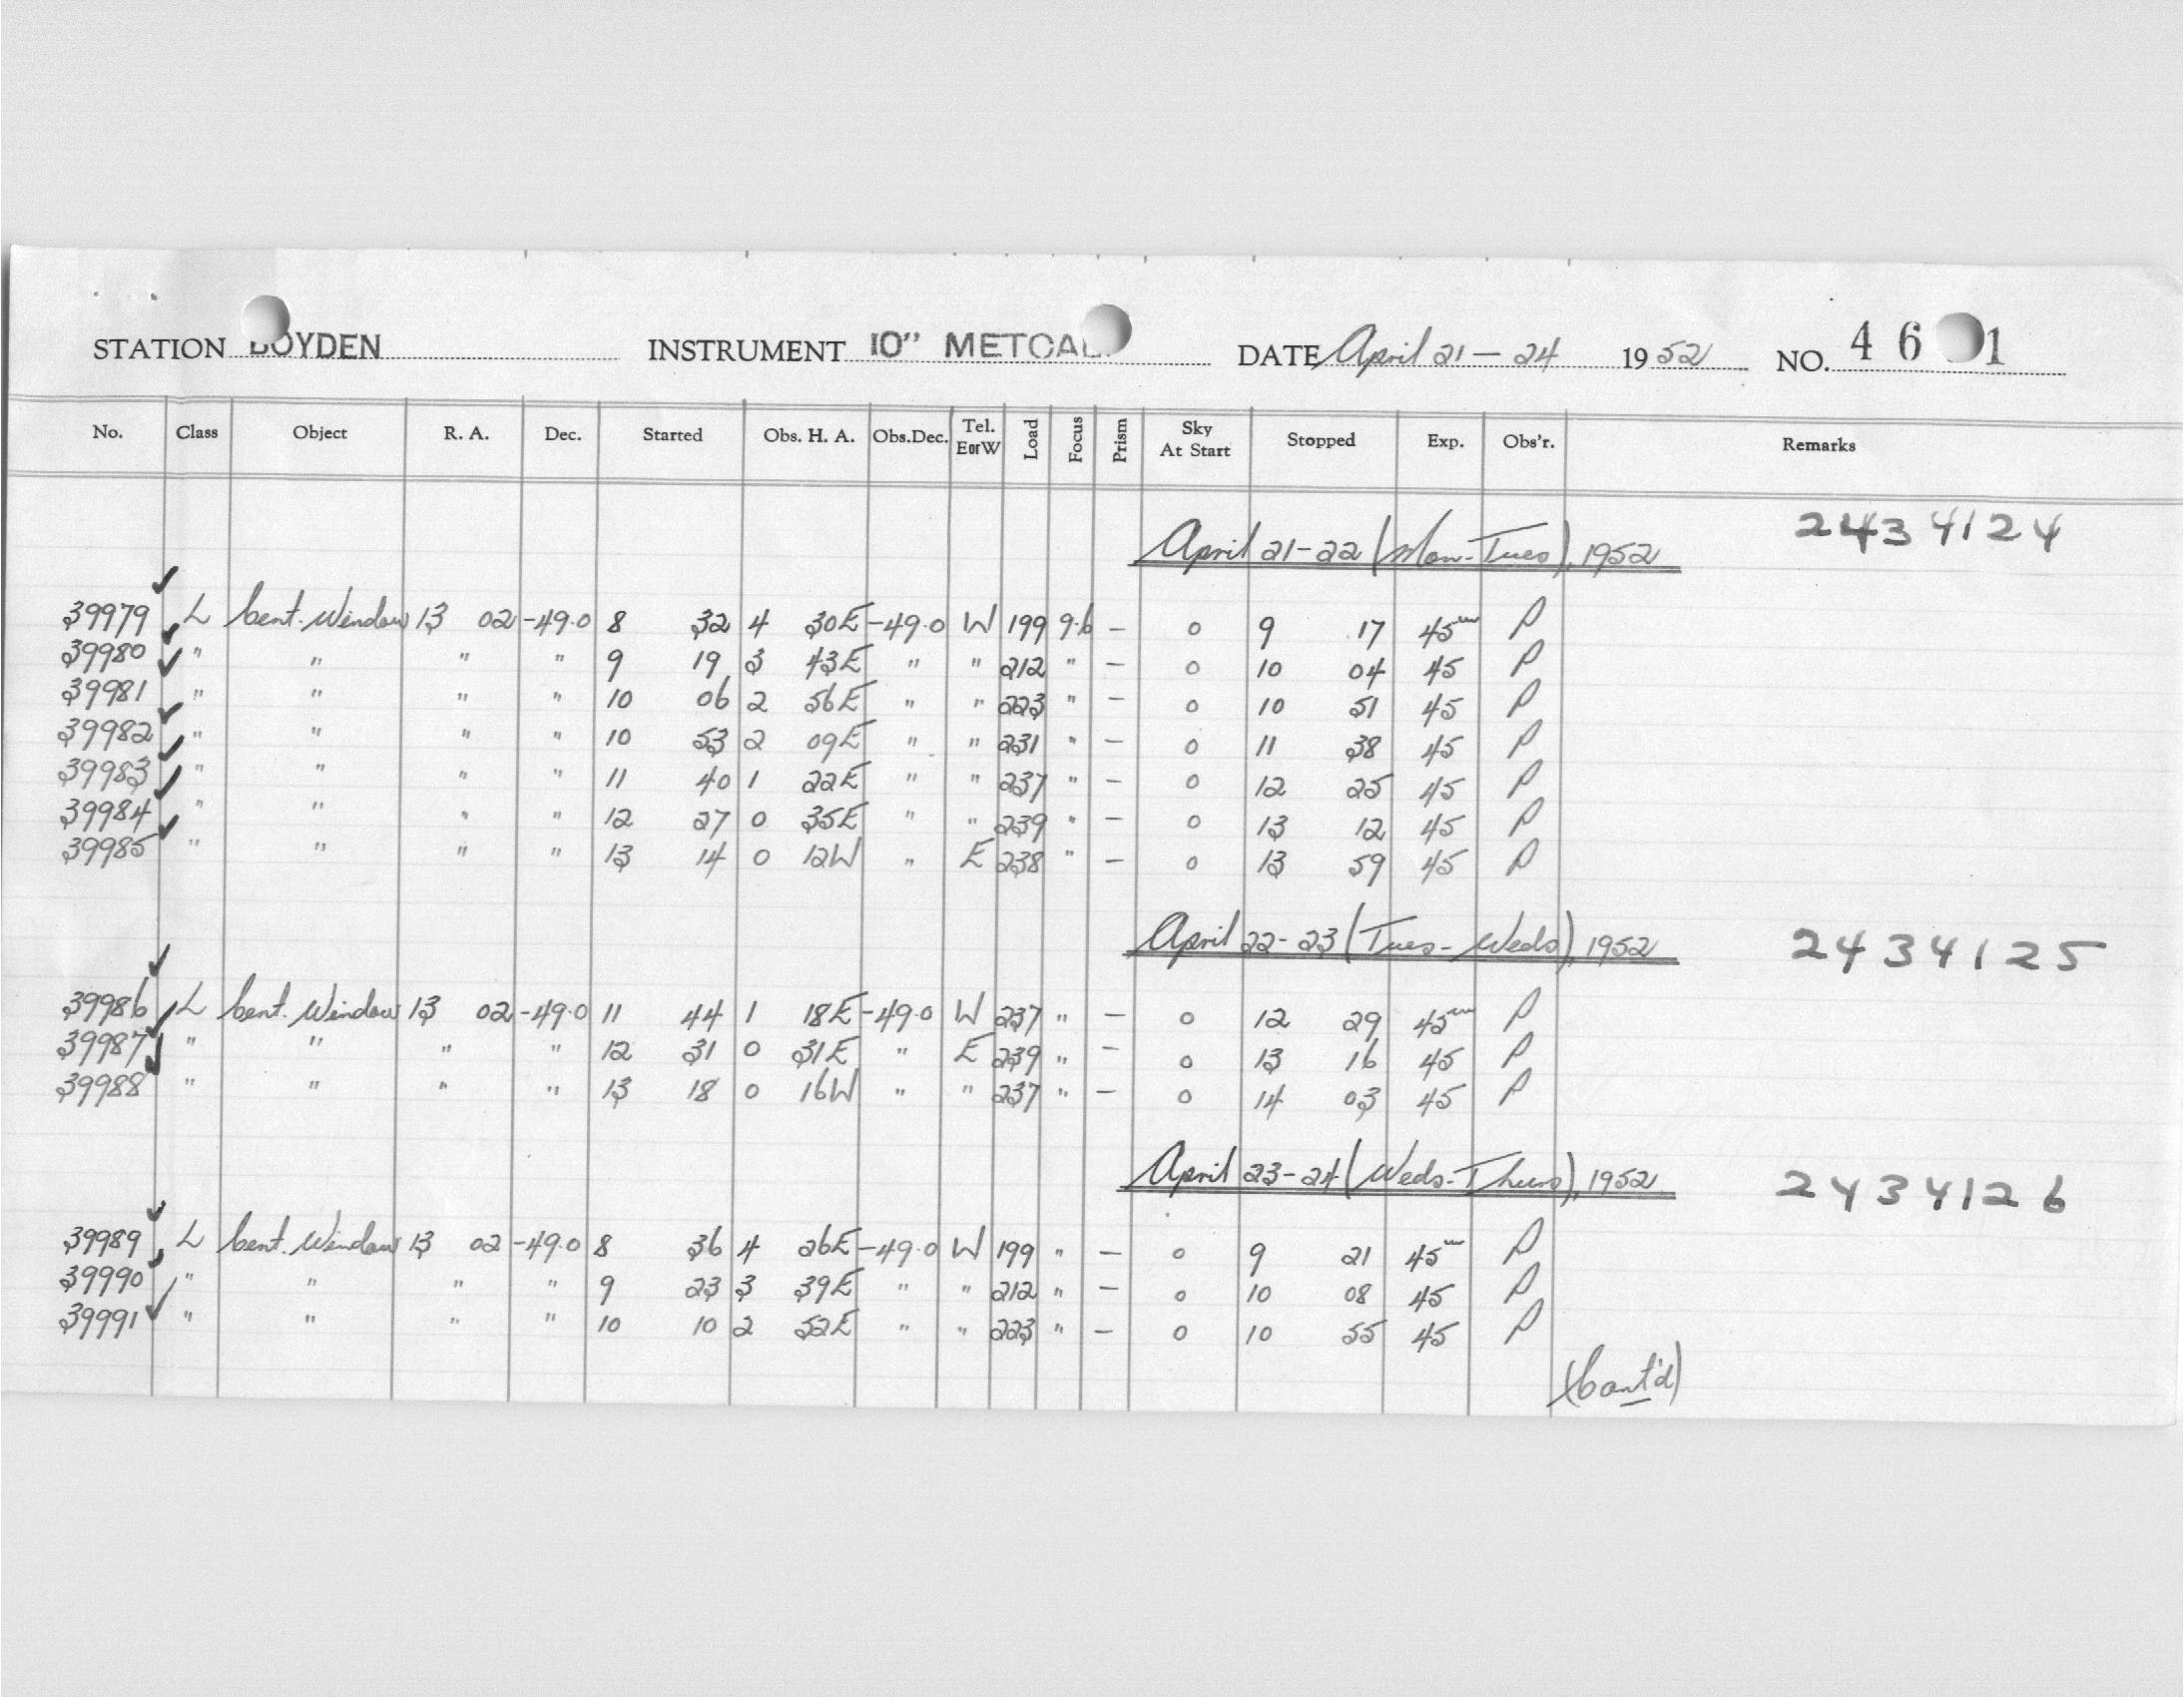 STATION BOYDEN INSTRUMENT 10" METCAL DATE April 21 - 24 1952 NO. 46 1
No. Class Object R. A. Dec. Started Obs. H. A. Obs.Dec. Tel. EorW Load Focus Prism Sky At Start Stopped Exp. Obs'r. Remarks
April 21-22 (Mon-Tues), 1952 2434124
39979 L Cent. Window 13 02 -49.0 8 32 4 30E -49.0 W 199 9.6 - 0 9 17 45m P
39980 " " " " 9 19 3 43E " " 212 " - 0 10 04 45 P
39981 " " " " 10 06 2 56E " " 223 " - 0 10 51 45 P
39982 " " " " 10 53 2 09E " " 231 " - 0 11 38 45 P
39983 " " " " 11 40 1 22E " " 237 " - 0 12 25 45 P
39984 " " " " 12 27 0 35E " " 239 " - 0 13 12 45 P
39985 " " " " 13 14 0 12W " E 238 " - 0 13 59 45 P
April 22-23 (Tues-Weds), 1952 2434125
39986 L Cent. Window 13 02 -49.0 11 44 1 18E -49.0 W 237 " - 0 12 29 45m P
39987 " " " " 12 31 0 31E " E 239 " - 0 13 16 45 P
39988 " " " " 13 18 0 16W " " 237 " - 0 14 03 45 P
April 23-24 (Weds-Thurs), 1952 2434126
39989 L Cent. Window 13 02 -49.0 8 36 4 26E -49.0 W 199 " - 0 9 21 45m P
39990 " " " " 9 23 3 39E " " 212 " - 0 10 08 45 P
39991 " " " " 10 10 2 52E " " 223 " - 0 10 55 45 P
(Cont'd)